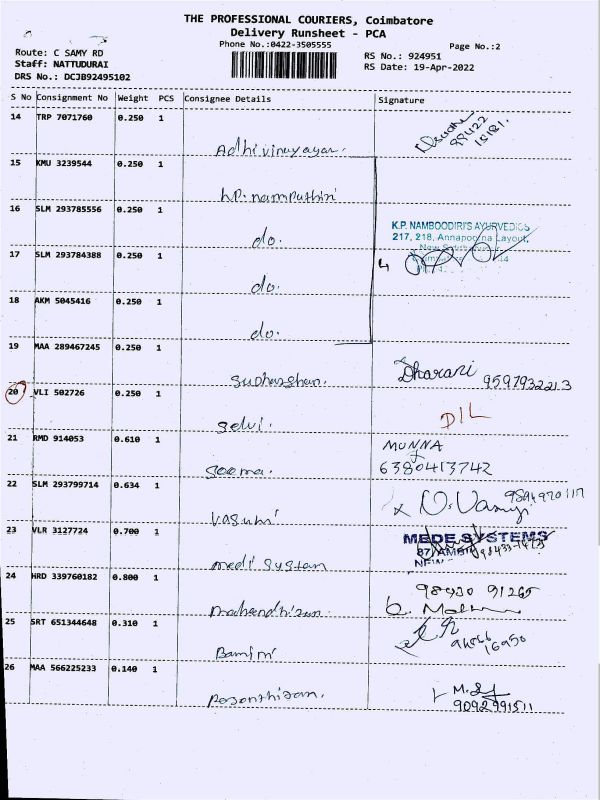 THE PROFESSIONAL COURIERS, Coimbatore
Delivery Runsheet - PCA
Phone No.:0422-3505555
Page No.:2
Route: C SAMY RD
Staff: NATTUDURAI
DRS No.: DCJB92495102
RS No.: 924951
RS Date: 19-Apr-2022
S No Consignment No Weight PCS Consignee Details Signature
14 TRP 7071760 0.250 1
Adhi vinayagar.
98422
15181.
15 KMU 3239544 0.250 1
k.p. namputhiri
16 SLM 293785556 0.250 1
do.
K.P. NAMBOODIRI'S AYURVEDICS
217, 218, Annapoorna Layout,
17 SLM 293784388 0.250 1
do.
4
18 AKM 5045416 0.250 1
do.
19 MAA 289467245 0.250 1
Sudharshan.
Dharani
9597932213
20 VLI 502726 0.250 1
Selvi.
DIL
21 RMD 914053 0.610 1
Seema.
MUNNA
6380413742
22 SLM 293799714 0.634 1
Vasuhi
9894920117
23 VLR 3127724 0.700 1
medi system
MEDE SYSTEMS
24 HRD 339760182 0.800 1
98430 91265
25 SRT 651344648 0.310 1
Bamini
94866
16950
26 MAA 566225233 0.140 1
9092991511